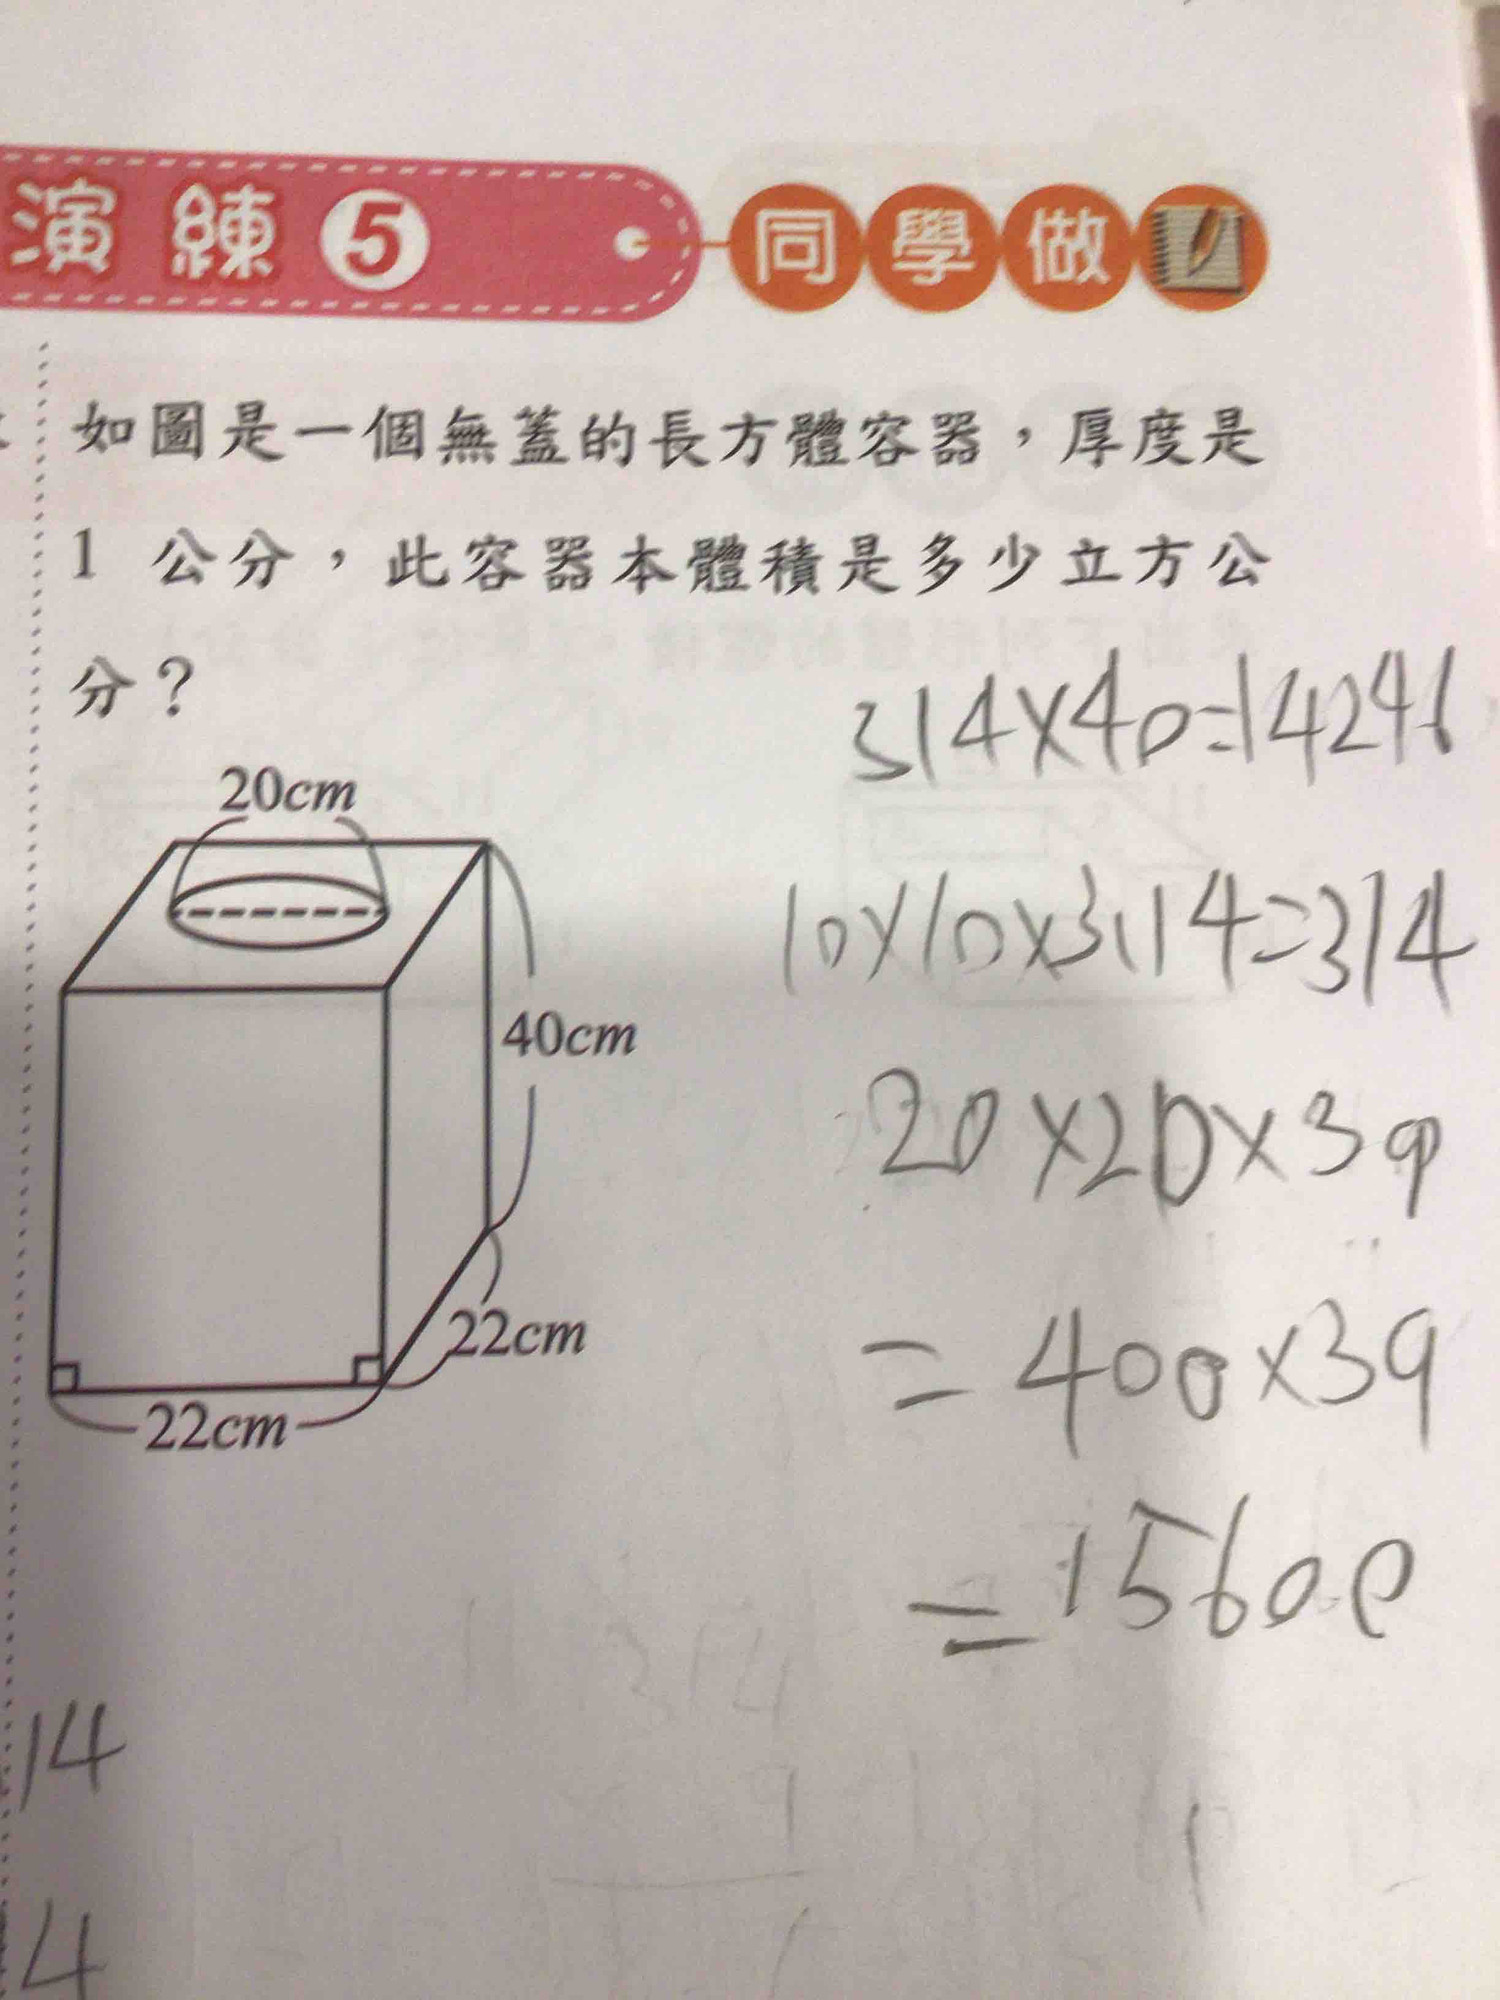 演練5 同學做
如圖是一個無蓋的長方體容器，厚度是
1 公分，此容器本體積是多少立方公
分？
314×40=14246
20cm
10×10×3.14=314
40cm
20×20×39
22cm
=400×39
22cm
=15600
14
4